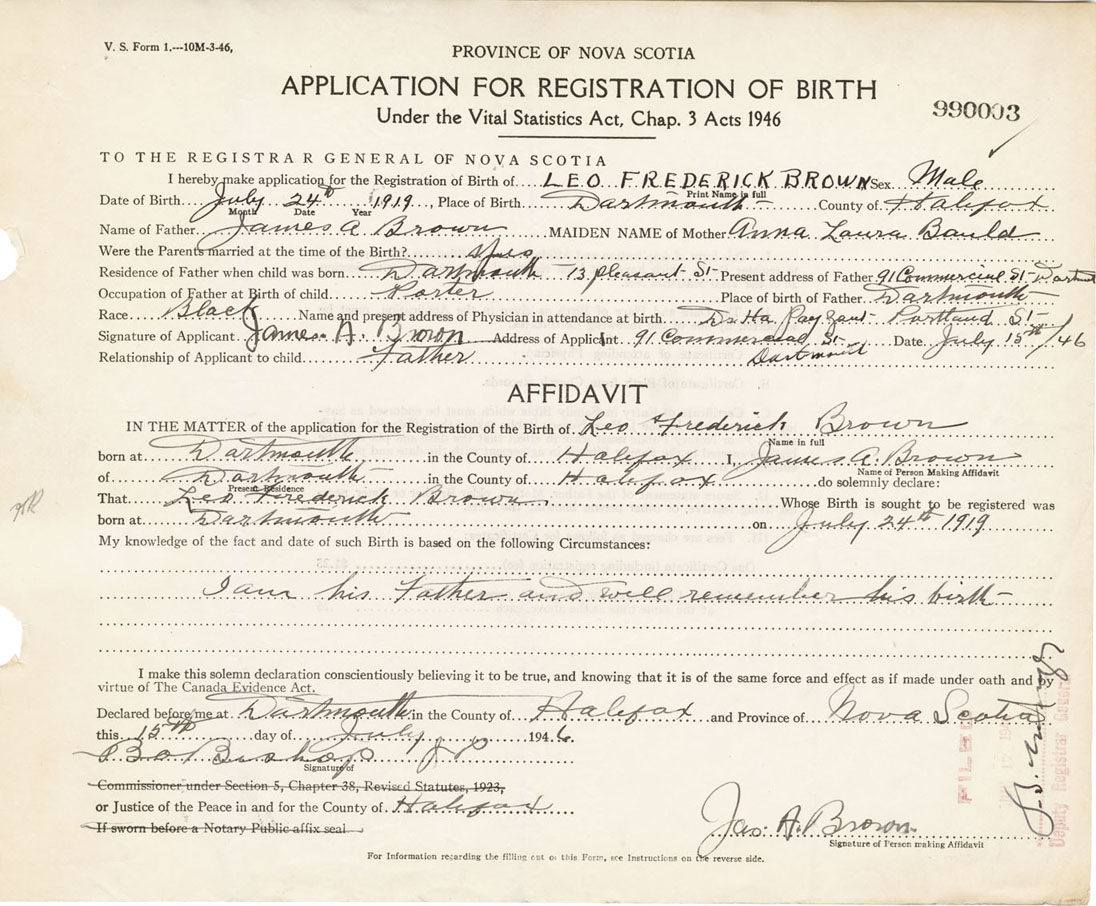 V. S. Form 1.---10M-3-46,
PROVINCE OF NOVA SCOTIA
APPLICATION FOR REGISTRATION OF BIRTH
990003
Under the Vital Statistics Act, Chap. 3 Acts 1946
TO THE REGISTRAR GENERAL OF NOVA SCOTIA
I hereby make application for the Registration of Birth of LEO FREDERICK BROWN Sex Male
Print Name in full
Date of Birth July 24th 1919, Place of Birth Dartmouth County of Halifax
Month Date Year
Name of Father James A Brown MAIDEN NAME of Mother Anna Laura Bauld
Were the Parents married at the time of the Birth? Yes
Residence of Father when child was born Dartmouth 13 pleasant St Present address of Father 91 Commercial St
Occupation of Father at Birth of child Porter Place of birth of Father Dartmouth
Race Black Name and present address of Physician in attendance at birth Dr Payzant Portland St
Signature of Applicant James A. Brown Address of Applicant 91 Commercial St Date July 15th/46
Dartmouth
Relationship of Applicant to child Father
AFFIDAVIT
IN THE MATTER of the application for the Registration of the Birth of Leo Frederick Brown
Name in full
born at Dartmouth in the County of Halifax I, James A. Brown
Name of Person Making Affidavit
of Dartmouth in the County of Halifax do solemnly declare:
Present Residence
That Leo Frederick Brown Whose Birth is sought to be registered was
born at Dartmouth on July 24th 1919
My knowledge of the fact and date of such Birth is based on the following Circumstances:
I am his Father and well remember his birth
I make this solemn declaration conscientiously believing it to be true, and knowing that it is of the same force and effect as if made under oath and by
virtue of The Canada Evidence Act.
Declared before me at Dartmouth in the County of Halifax and Province of Nova Scotia
this 15th day of July 1946
Bishop J P
Signature of
Commissioner under Section 5, Chapter 38, Revised Statutes, 1923,
or Justice of the Peace in and for the County of Halifax
If sworn before a Notary Public affix seal
Jas. A. Brown
Signature of Person making Affidavit
For Information regarding the filling out of this Form, see Instructions on the reverse side.
FILED
Deputy Registrar General